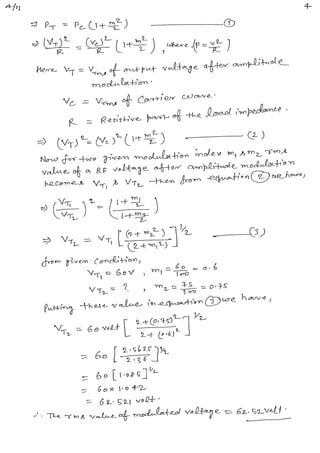 ⇒ P_T = P_C (1 + m²/2) ——— ①
⇒ (V_T)²/R = (V_C)²/R (1 + m²/2), where (P = V²/R)
Here V_T = Vrms of output voltage after amplitude
modulation.
V_C = Vrms of Carrier wave.
R = Resistive part of the load impedance.
⇒ (V_T)² = (V_C)² (1 + m²/2) ——— (2)
Now for two given modulation index m₁ & m₂ rms
value of a RF voltage after amplitude modulation
becomes V_T₁ & V_T₂ then from equation ② we have,
⇒ (V_T₁/V_T₂)² = (1 + m₁²/2)/(1 + m₂²/2)
⇒ V_T₂ = V_T₁ [(2 + m₂²)/(2 + m₁²)]^1/2 ——— (3)
from given Condition,
V_T₁ = 60V, m₁ = 60/100 = 0.6
V_T₂ = ?, m₂ = 75/100 = 0.75
Putting these value in equation ③ we have,
V_T₂ = 60 volt [2 + (0.75)²/2 + (0.6)²]^1/2
= 60 [2.5625/2.36]^1/2
= 60 [1.085]^1/2
= 60 x 1.042
= 62.521 volt.
∴ The rms value of modulated voltage = 62.52 volt.